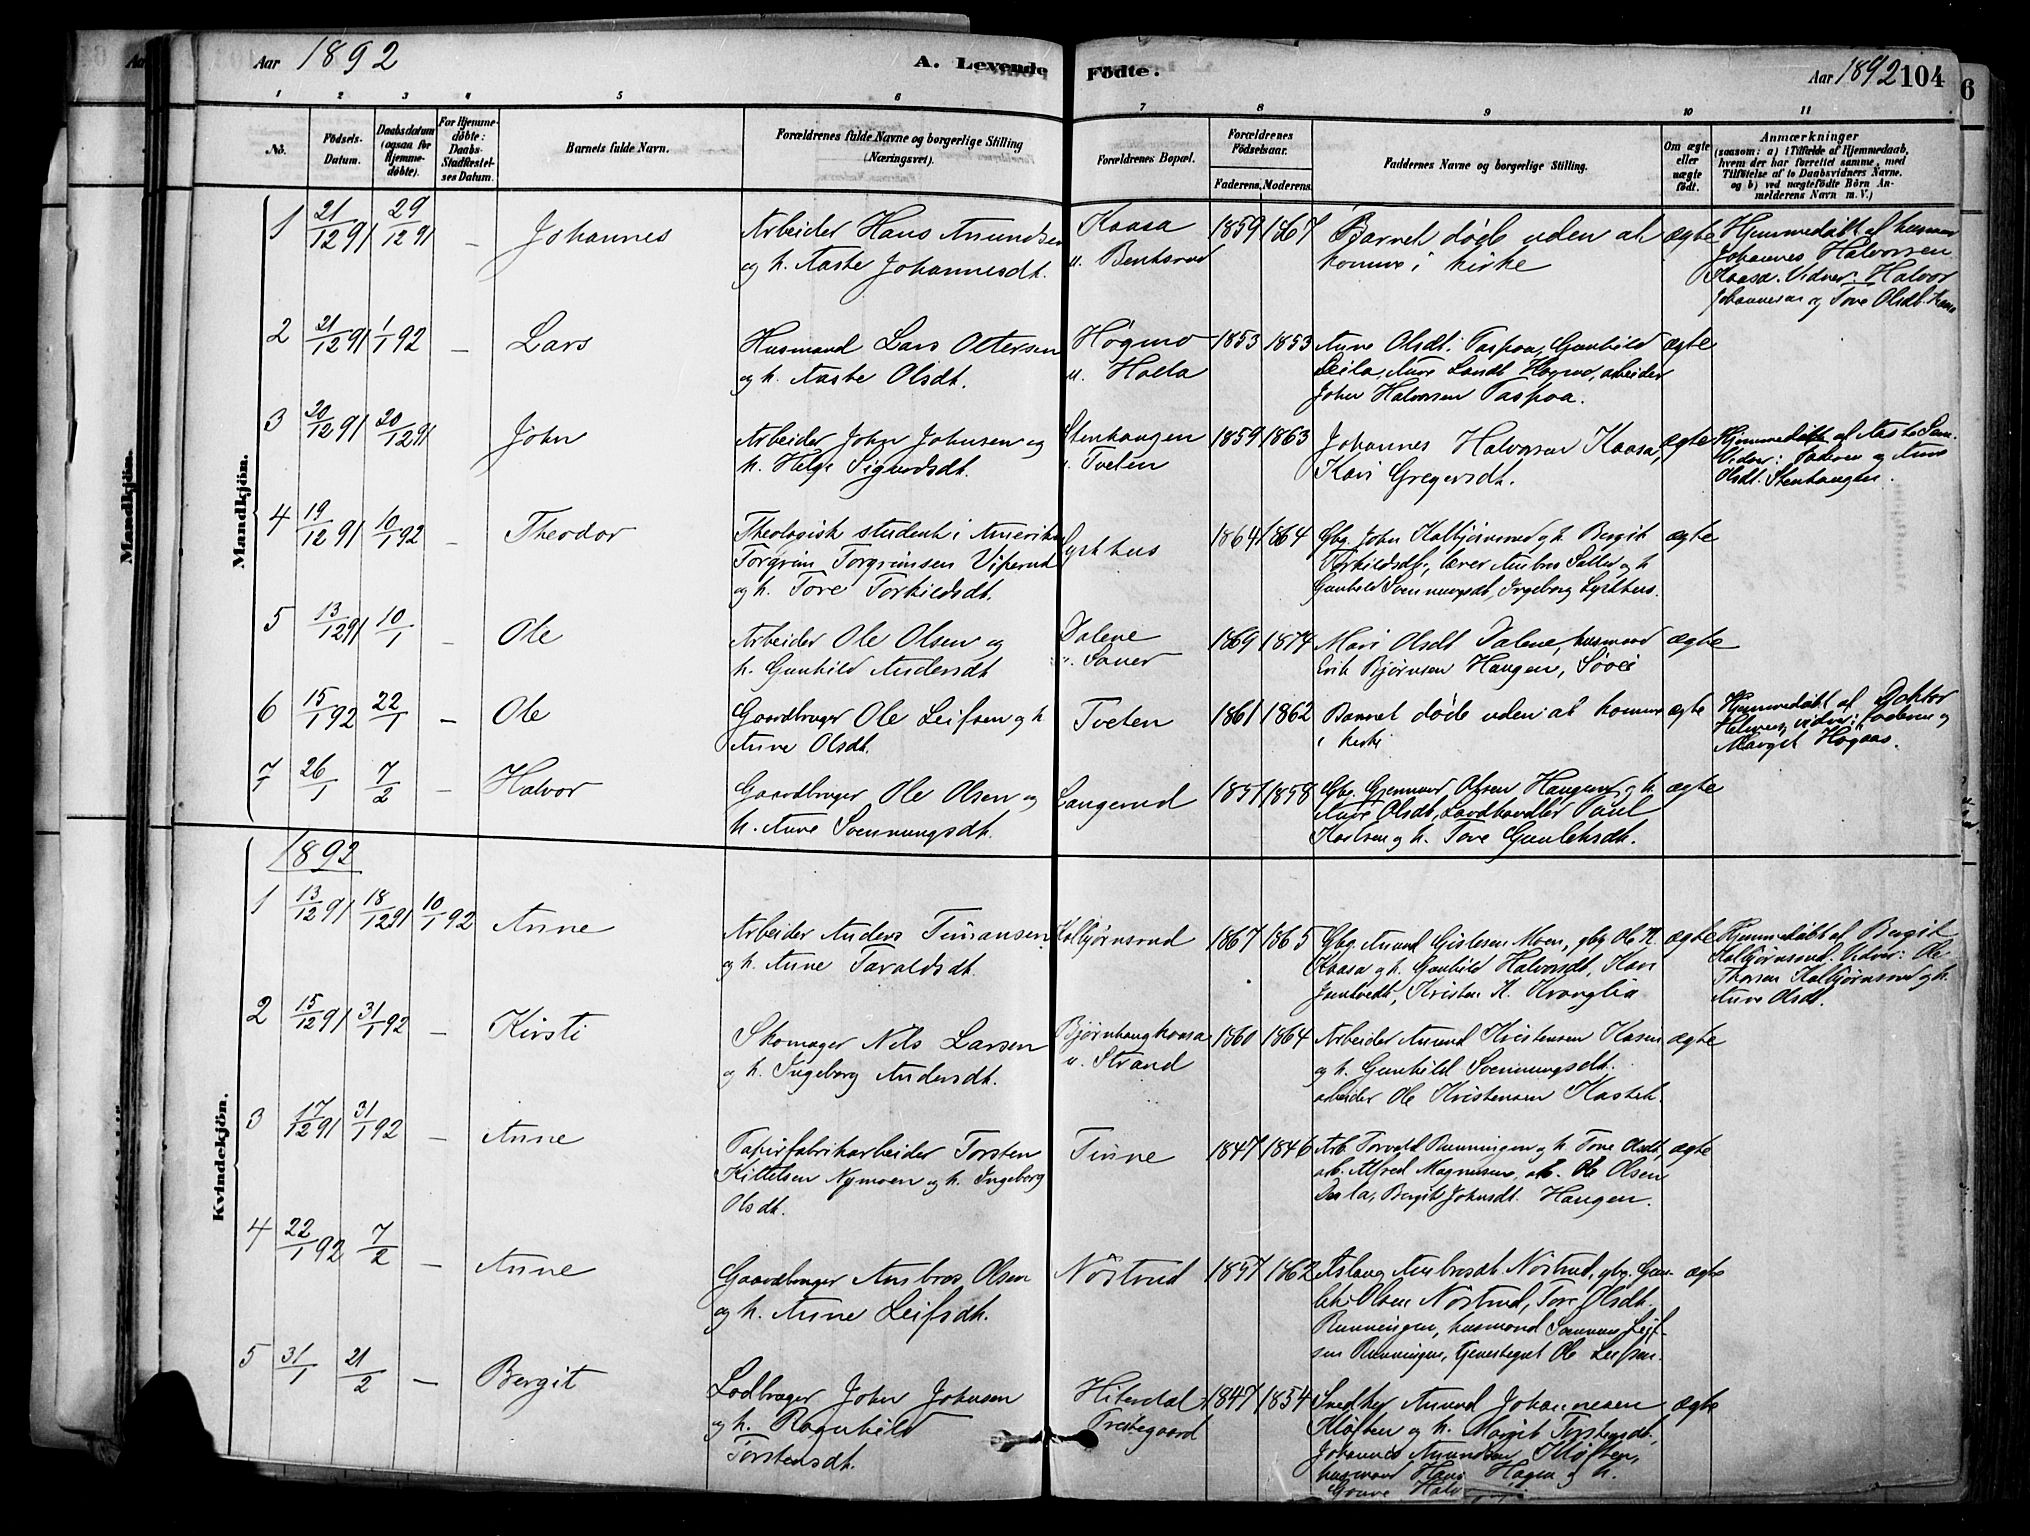 Aar 1892
A. Levende Fødte.
Aar 1892 104
1 2 3 4 5 6 7 8 9 10 11
No.
Fødsels-
Datum.
Daabsdatum
(ogsaa for
Hjemme-
døbte).
For Hjemme-
døbte:
Daabs-
Stadfæstel-
ses Datum.
Barnets fulde Navn.
Forældrenes fulde Navne og borgerlige Stilling
(Næringsvei).
Forældrenes Bopæl.
Forældrenes
Fødselsaar.
Faderens. Moderens.
Faddernes Navne og borgerlige Stilling.
Om ægte
eller
uægte
født.
Anmærkninger
(saasom: a) i Tilfælde af Hjemmedaab,
hvem der har forrettet samme, med
Tilføielse af to Daabsvidners Navne.
og b) ved uægtefødte Børn An-
melderens Navn m. V.)
Mandkjön.
1 21/12 91 29/12 91 – Johannes
Arbeider Hans Amundsen
og h. Aaste Johannesdt.
Kaasa
u. Bentsrud
1859 1867
Barnet døde uden at
komme i kirke
ægte
Hjemmedøbt af husm
Johannes Halvorsen
Kaasa. Vidner: Halvor
Johannesen og Tove Olsdt.
2 21/12 91 1/1 92 – Lars
Husmand Lars Ottersen
og h. Aaste Olsdt.
Høgmo
u. Holla
1853 1853
Anne Olsdt. Taspaa, Gunhild
Leila, Anne Høgmo, arbeider
John Halvorsen Taspaa.
ægte
3 20/12 91 20/12 91 John
Arbeider John Johnsen og
h. Helge Sigurdsdt.
Stenhaugen
u. Tveten
1859 1863
Johannes Halvorsen Kaasa,
Kari Gregersdt.
ægte
Hjemmedøbt af Aaste
Vidner: Faderen og Anne
Olsdt. Stenhaugen.
4 19/12 91 10/1 92 – Theodor
Theologisk student i Amerika
Torgrim Torgrimsen Viperud
og h. Tore Torkildsdt.
Lysthus
1864 1864
Gbg. John Kolbjørnsrud og h. Bergit
Torkildsdt., lærer Ambros Sætler og h
Gunhild Svennungsdt, Ingeborg Lysthus.
ægte
5 13/12 91 10/1 – Ole
Arbeider Ole Olsen og
h. Gunhild Andersdt
Dalene
u. Sauer
1869 1874
Mari Olsdt Dalene, husmand
Erik Bjørnsen Haugen,
ægte
6 15/1 92 22/1 – Ole
Gaardbruger Ole Leifsen og h
Anne Olsdt.
Tveten
1861 1862
Barnet døde uden at komme
i kirke
ægte
Hjemmedøbt af Doktor
vidner: faderen og
Marget Høgaas.
7 26/1 7/2 – Halvor
Gaardbruger Ole Olsen og
h. Anne Svennungsdt.
Langerud
1857 1858
Gbr. Gjermund Olsen Haugen og h.
Anne Olsdt, Landhandler Paul
Karlsen og h. Tove Gunleiksdt.
ægte
1892
Kvindekjön.
1 13/12 91 18/12 91 10/1 92 Anne
Arbeider Anders Timansen
og h. Anne Taraldsdt.
Kolbjørnsrud
1867 1865
Gbg. Amund Gislesen Moen, gbg Ole K.
Kaasa og h. Gunhild Halvorsdt, Kari
Jamtvedt, Kristen K. Kvanglia
ægte
Hjemmedøbt af Bergit
Kolbjørnsrud. Vidner: Ole
Thorsen Kolbjørnsrud og h.
Anne Olsdt.
2 15/12 91 31/1 92 – Kirsti
Skomager Nils Larsen
og h. Ingeborg Andersdt.
Bjørnhaugkaasa
u. Strand
1860 1864
Arbeider Amund Kristensen Kasin
og h. Gunhild Svennungsdt.
arbeider Ole Kristensen Kastet.
ægte
3 17/12 91 31/1 92 – Anne
Papirfabrikarbeider Torsten
Kittelsen Nymoen og h. Ingeborg
Olsdt.
Tinne
1847 1846
Arb. Torvald Rønningen og h. Tone Olsdt,
arb. Alfred Magnussen, arb. Ole Olsen
Bergit Johnsdt. Haugen.
ægte
4 22/1 92 7/2 – Anne
Gaardbruger Ambros Olsen
og h. Anne Leifsdt.
Nøstrud
1857 1862
Aslaug Ambrosdt. Nøstrud, gbg. Gun-
leik Olsen Nøstrud, Tone Olsdt.
Rønningen, husmand Svennun Leif-
sen Rønningen, Tjenestegut Ole Leifsen.
ægte
5 31/1 21/2 – Bergit
Lodbruger John Johnsen
og h. Ragnhild
Torstensdt.
Hiterdal
Prestegaard
1847 1854
Snedker Amund Johannesen
Kløften og h. Margit Torstensdt,
Johannes Amundsen Kløften,
husmand Hans Hagen og h.
ægte